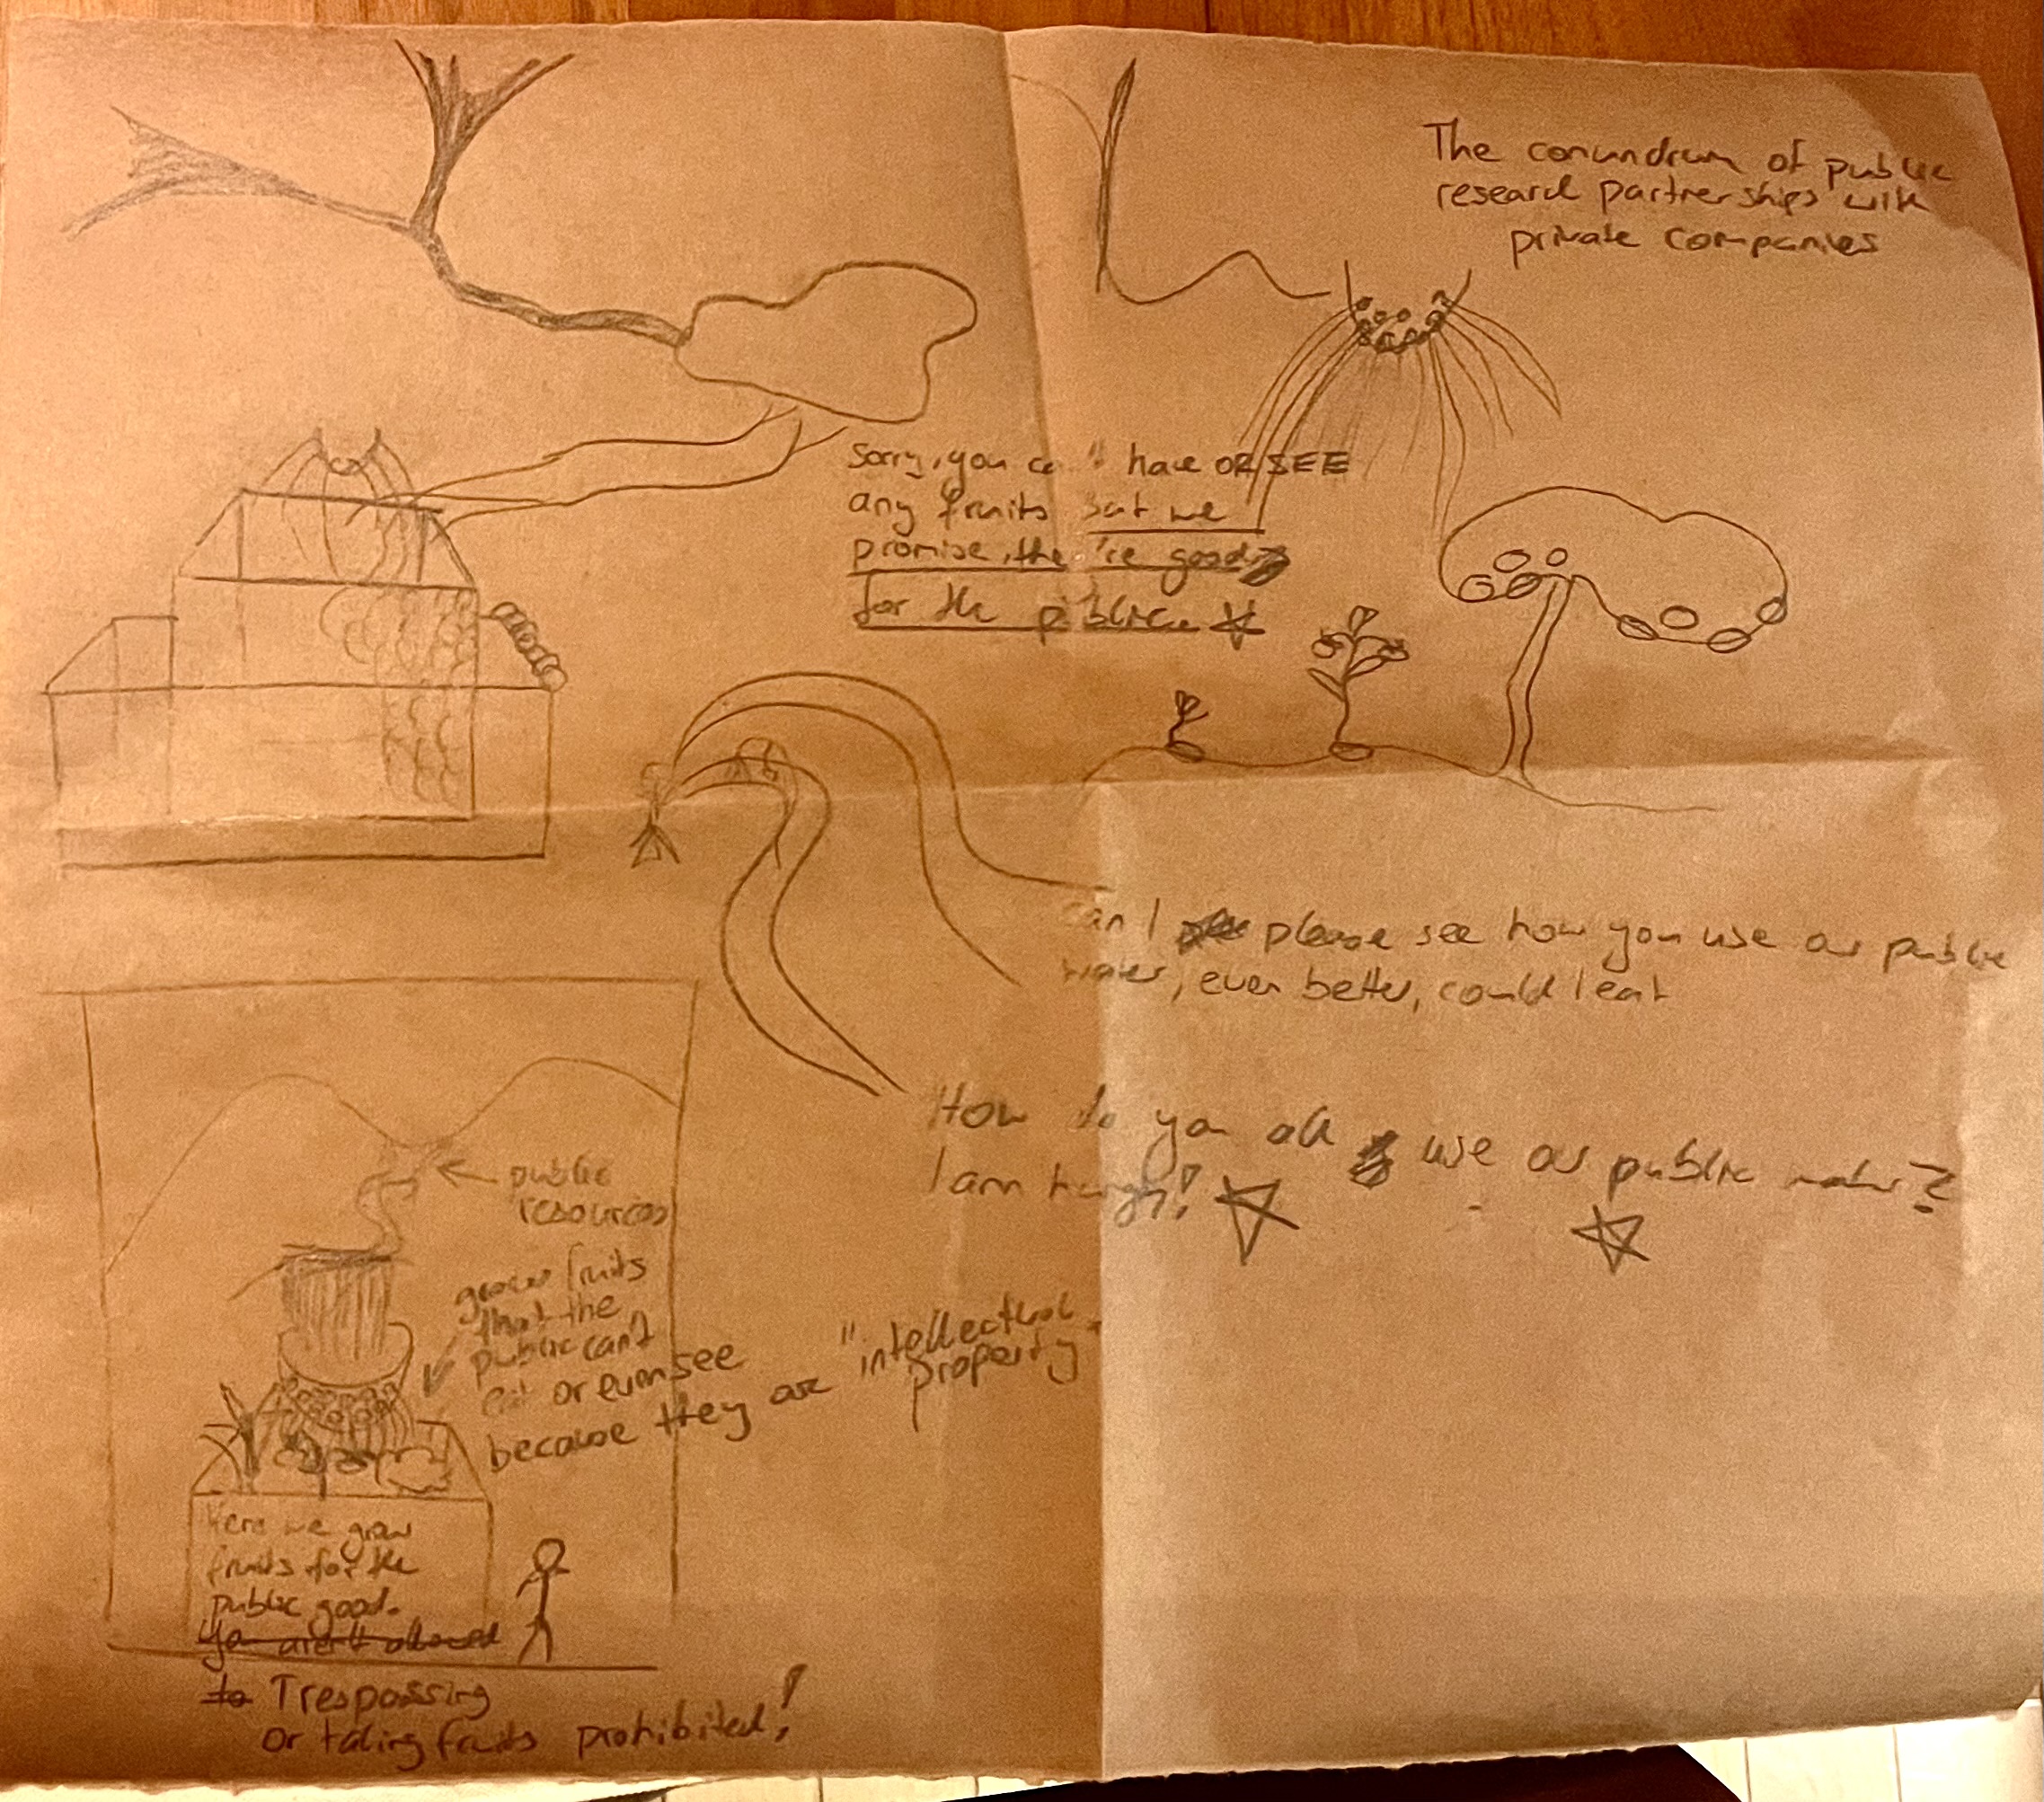 The conundrum of public
research partnerships with
private companies
Sorry, you ca 't have OR SEE
any fruits but we
promise, the 're good
for the public
can I please see how you use our public
water, even better, could I eat
How do you all use our public water?
I am hungry!
public
resources
grows fruits
that the
public can't
eat or even see
because they are "intellectual
property"
Here we grow
fruits for the
public good.
You aren't allowed
to Trespassing
or taking fruits prohibited!